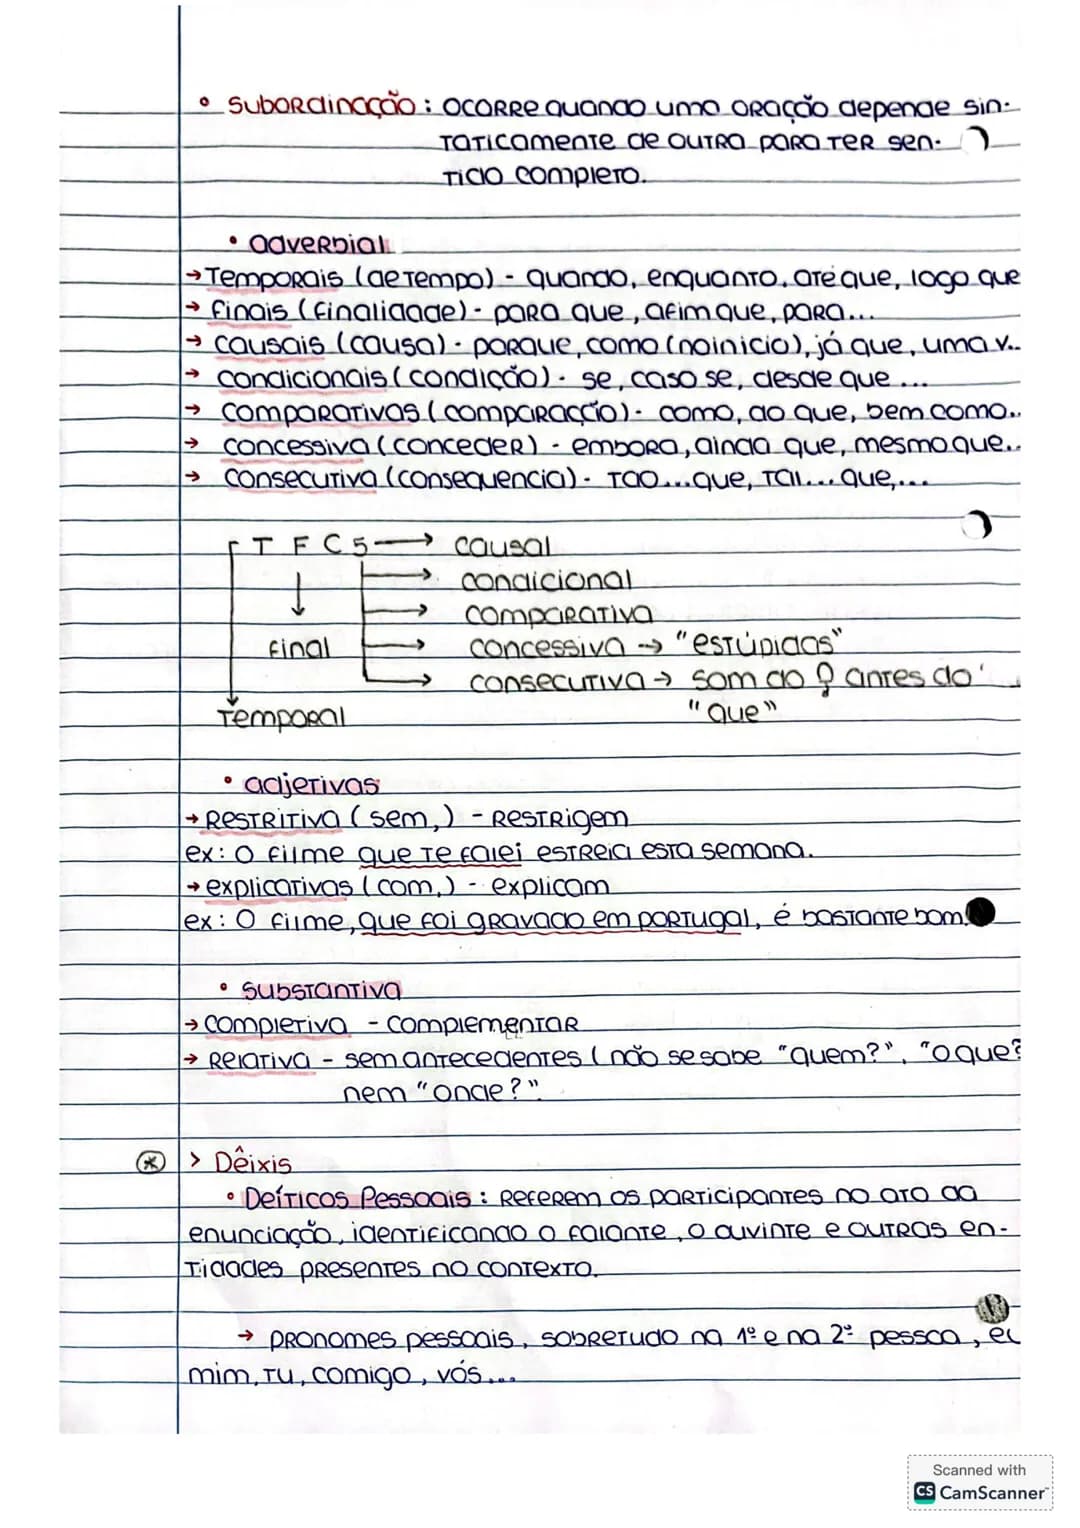 • Subordinação : ocorre quando uma oração depende sin-
taticamente de outra para ter sen-
tido completo.
• adverbial
→ Temporais (de tempo) - quando, enquanto, até que, logo que
→ finais (finalidade) - para que, afim que, para...
→ causais (causa) - porque, como (no inicio), já que, uma v..
→ condicionais (condição) - se, caso se, desde que ...
→ comparativas (comparação) - como, do que, bem como..
→ concessiva (conceder) - embora, ainda que, mesmo que..
→ consecutiva (consequencia) - tão...que, tal...que,...
T F C 5 → causal
→ condicional
↓ → comparativa
final → concessiva → "estúpidas"
→ consecutiva → som do antes do
Temporal "que"
• adjetivas
→ Restritiva (sem,) - Restrigem
ex: O filme que te falei estreia esta semana.
→ explicativas (com,) - explicam
ex: O filme, que foi gravado em portugal, é bastante bom.
• substantiva
→ completiva - complementar
→ Relativa - sem antecedentes (não se sabe "quem?", "o que?
nem "onde?"
> Dêixis
• Deíticos Pessoais : Referem os participantes no ato da
enunciação, identificando o falante, o ouvinte e outras en-
tidades presentes no contexto.
→ pronomes pessoais, sobretudo na 1ª e na 2ª pessoa, eu
mim, tu, comigo, vós...
Scanned with
CS CamScanner